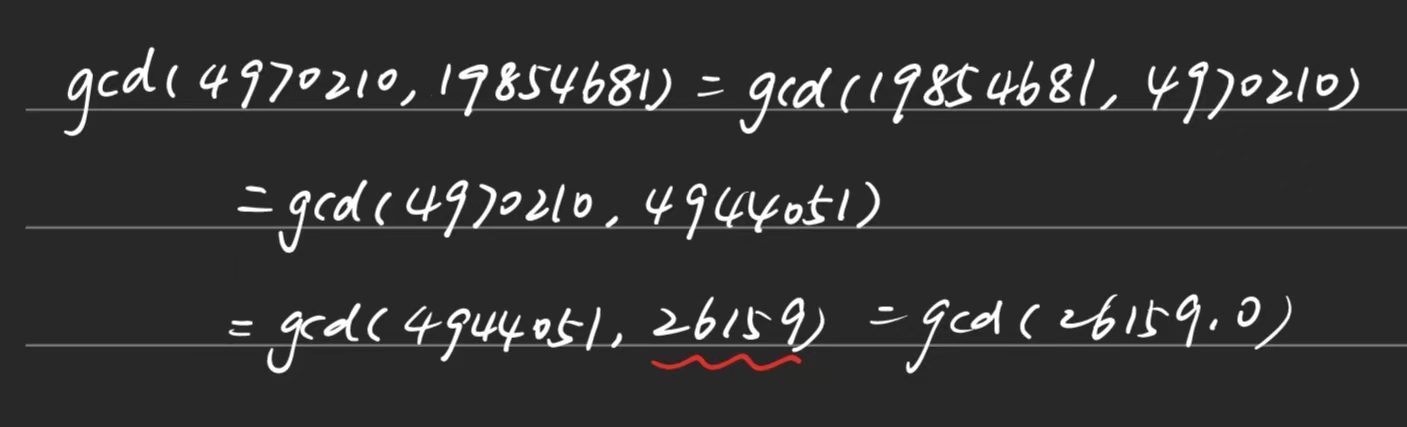 gcd(4970210, 19854681) = gcd(19854681, 4970210)
= gcd(4970210, 4944051)
= gcd(4944051, 26159) = gcd(26159, 0)